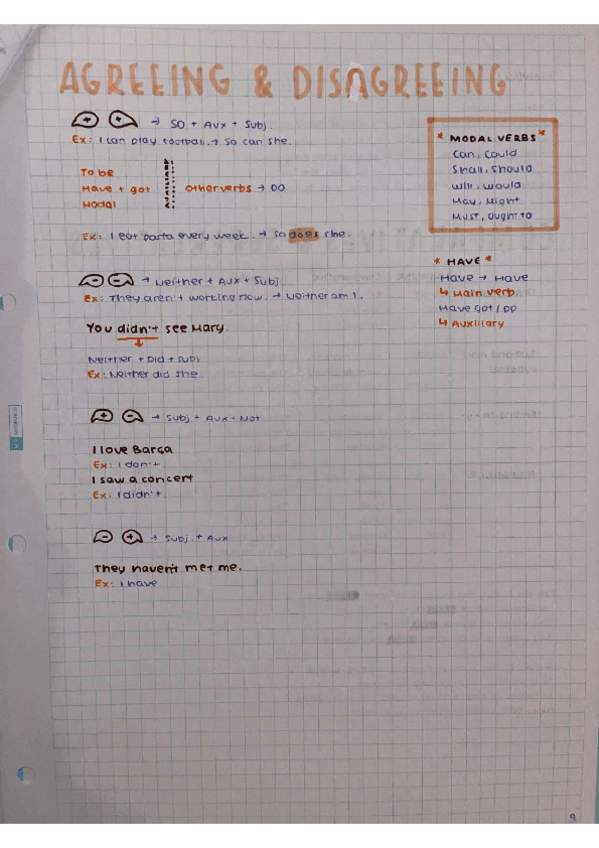 AGREEING & DISAGREEING
+ + → SO + Aux + Subj.
Ex: I can play football → So can she.
To be
Have + got
Modal
AUXILIARY
Other verbs → DO
Ex: I eat pasta every week. → So does she.
- - → Neither + Aux + Subj.
Ex: They aren't working now. → Neither am I.
You didn't see Mary.
Neither + Did + Subj
Ex: Neither did she.
+ - → Subj. + Aux + Not
I love Barça
Ex: I don't
I saw a concert
Ex: I didn't
- + → Subj. + Aux
They haven't met me.
Ex: I have
* MODAL VERBS *
Can, Could
Shall, Should
Will, Would
May, Might
Must, Ought to
* HAVE *
Have → Have
↳ Main verb.
Have got / DO
↳ Auxiliary
9